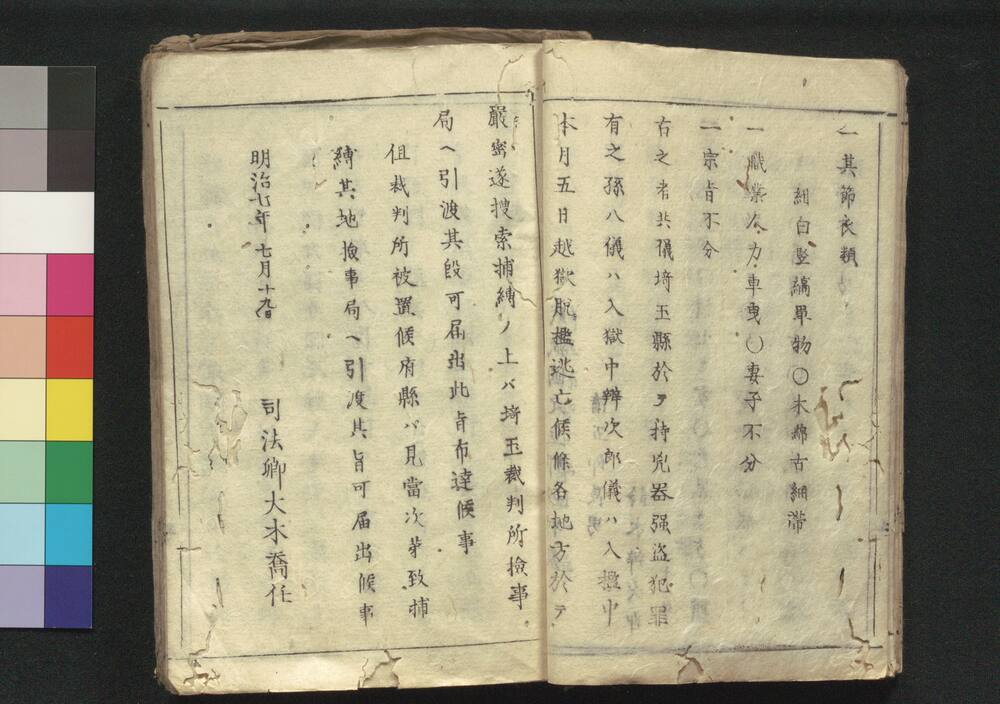 一其節衣類
紺白竪縞単物〇木綿古細帯
一職業次力車曳〇妻子不分
一宗旨不分
右之者共儀埼玉縣於ヲ持兇器强盗犯罪
有之孫八儀ハ入獄中辨次郎儀ハ入檻中
本月五日越獄脱檻逃亡候條各地方於テ
嚴密遂搜索捕縛ノ上ハ埼玉裁判所撿事
局ヘ引渡其段可届出此旨布達候事
但裁判所被置候府縣ハ見當次第致捕
縛其地撿事局ヘ引渡其旨可届出候事
明治七年七月十九日
司法卿大木喬任